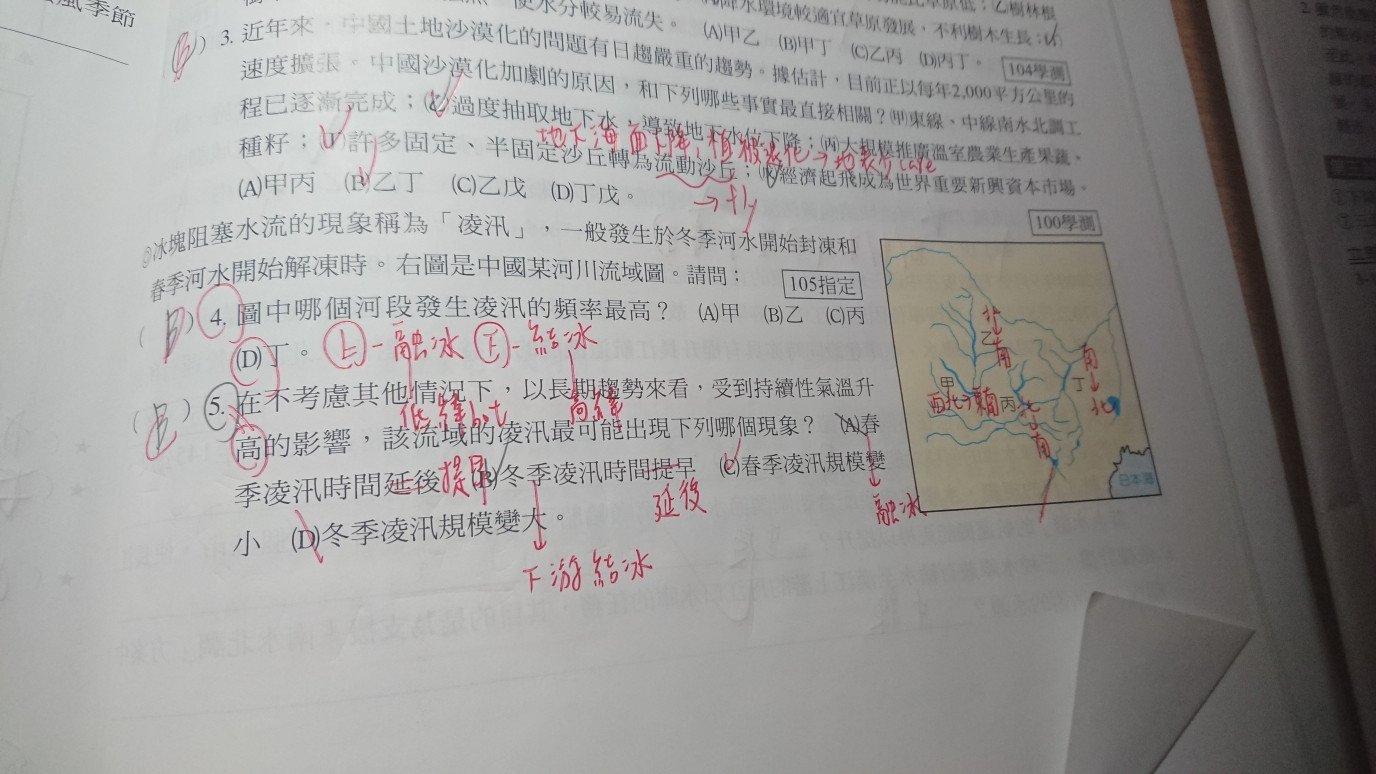 風季節
使水分較易流失。
降水環境較適宜草原發展,不利樹木生長;
(A)甲乙 (B)甲丁 (C)乙丙 (D)丙丁。
104學測
(B) 3. 近年來,中國土地沙漠化的問題有日趨嚴重的趨勢。據估計,目前正以每年2,000平方公里的
速度擴張。中國沙漠化加劇的原因,和下列哪些事實最直接相關?(甲)東線、中線南水北調工
程已逐漸完成;(乙)過度抽取地下水,導致地下水位下降;(丙)大規模推廣溫室農業生產果蔬、
地下海面下降,植被退化→地表少care
種籽;(丁)許多固定、半固定沙丘轉為流動沙丘;(戊)經濟起飛成為世界重要新興資本市場。
→fly
(A)甲丙 (B)乙丁 (C)乙戊 (D)丁戊。
100學測
◎冰塊阻塞水流的現象稱為「凌汛」,一般發生於冬季河水開始封凍和
春季河水開始解凍時。右圖是中國某河川流域圖。請問:
105指定
( ) 4. 圖中哪個河段發生凌汛的頻率最高? (A)甲 (B)乙 (C)丙
(D)丁。
上-融冰 下-結冰
低緯hot 高緯
( ) 5. 在不考慮其他情況下,以長期趨勢來看,受到持續性氣溫升
高的影響,該流域的凌汛最可能出現下列哪個現象? (A)春
季凌汛時間延後 提早 (B)冬季凌汛時間提早 (C)春季凌汛規模變
延後
融冰
小 (D)冬季凌汛規模變大。
下游結冰
北
乙
南
甲
西北→東南
丙
北
南
丁
南
北
日本海